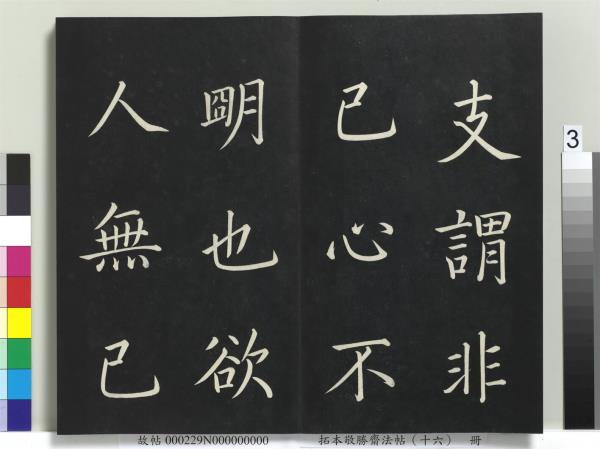 支謂非
已心不
明也欲
人無已
3
故帖000229N000000000 拓本敬勝齋法帖（十六） 冊